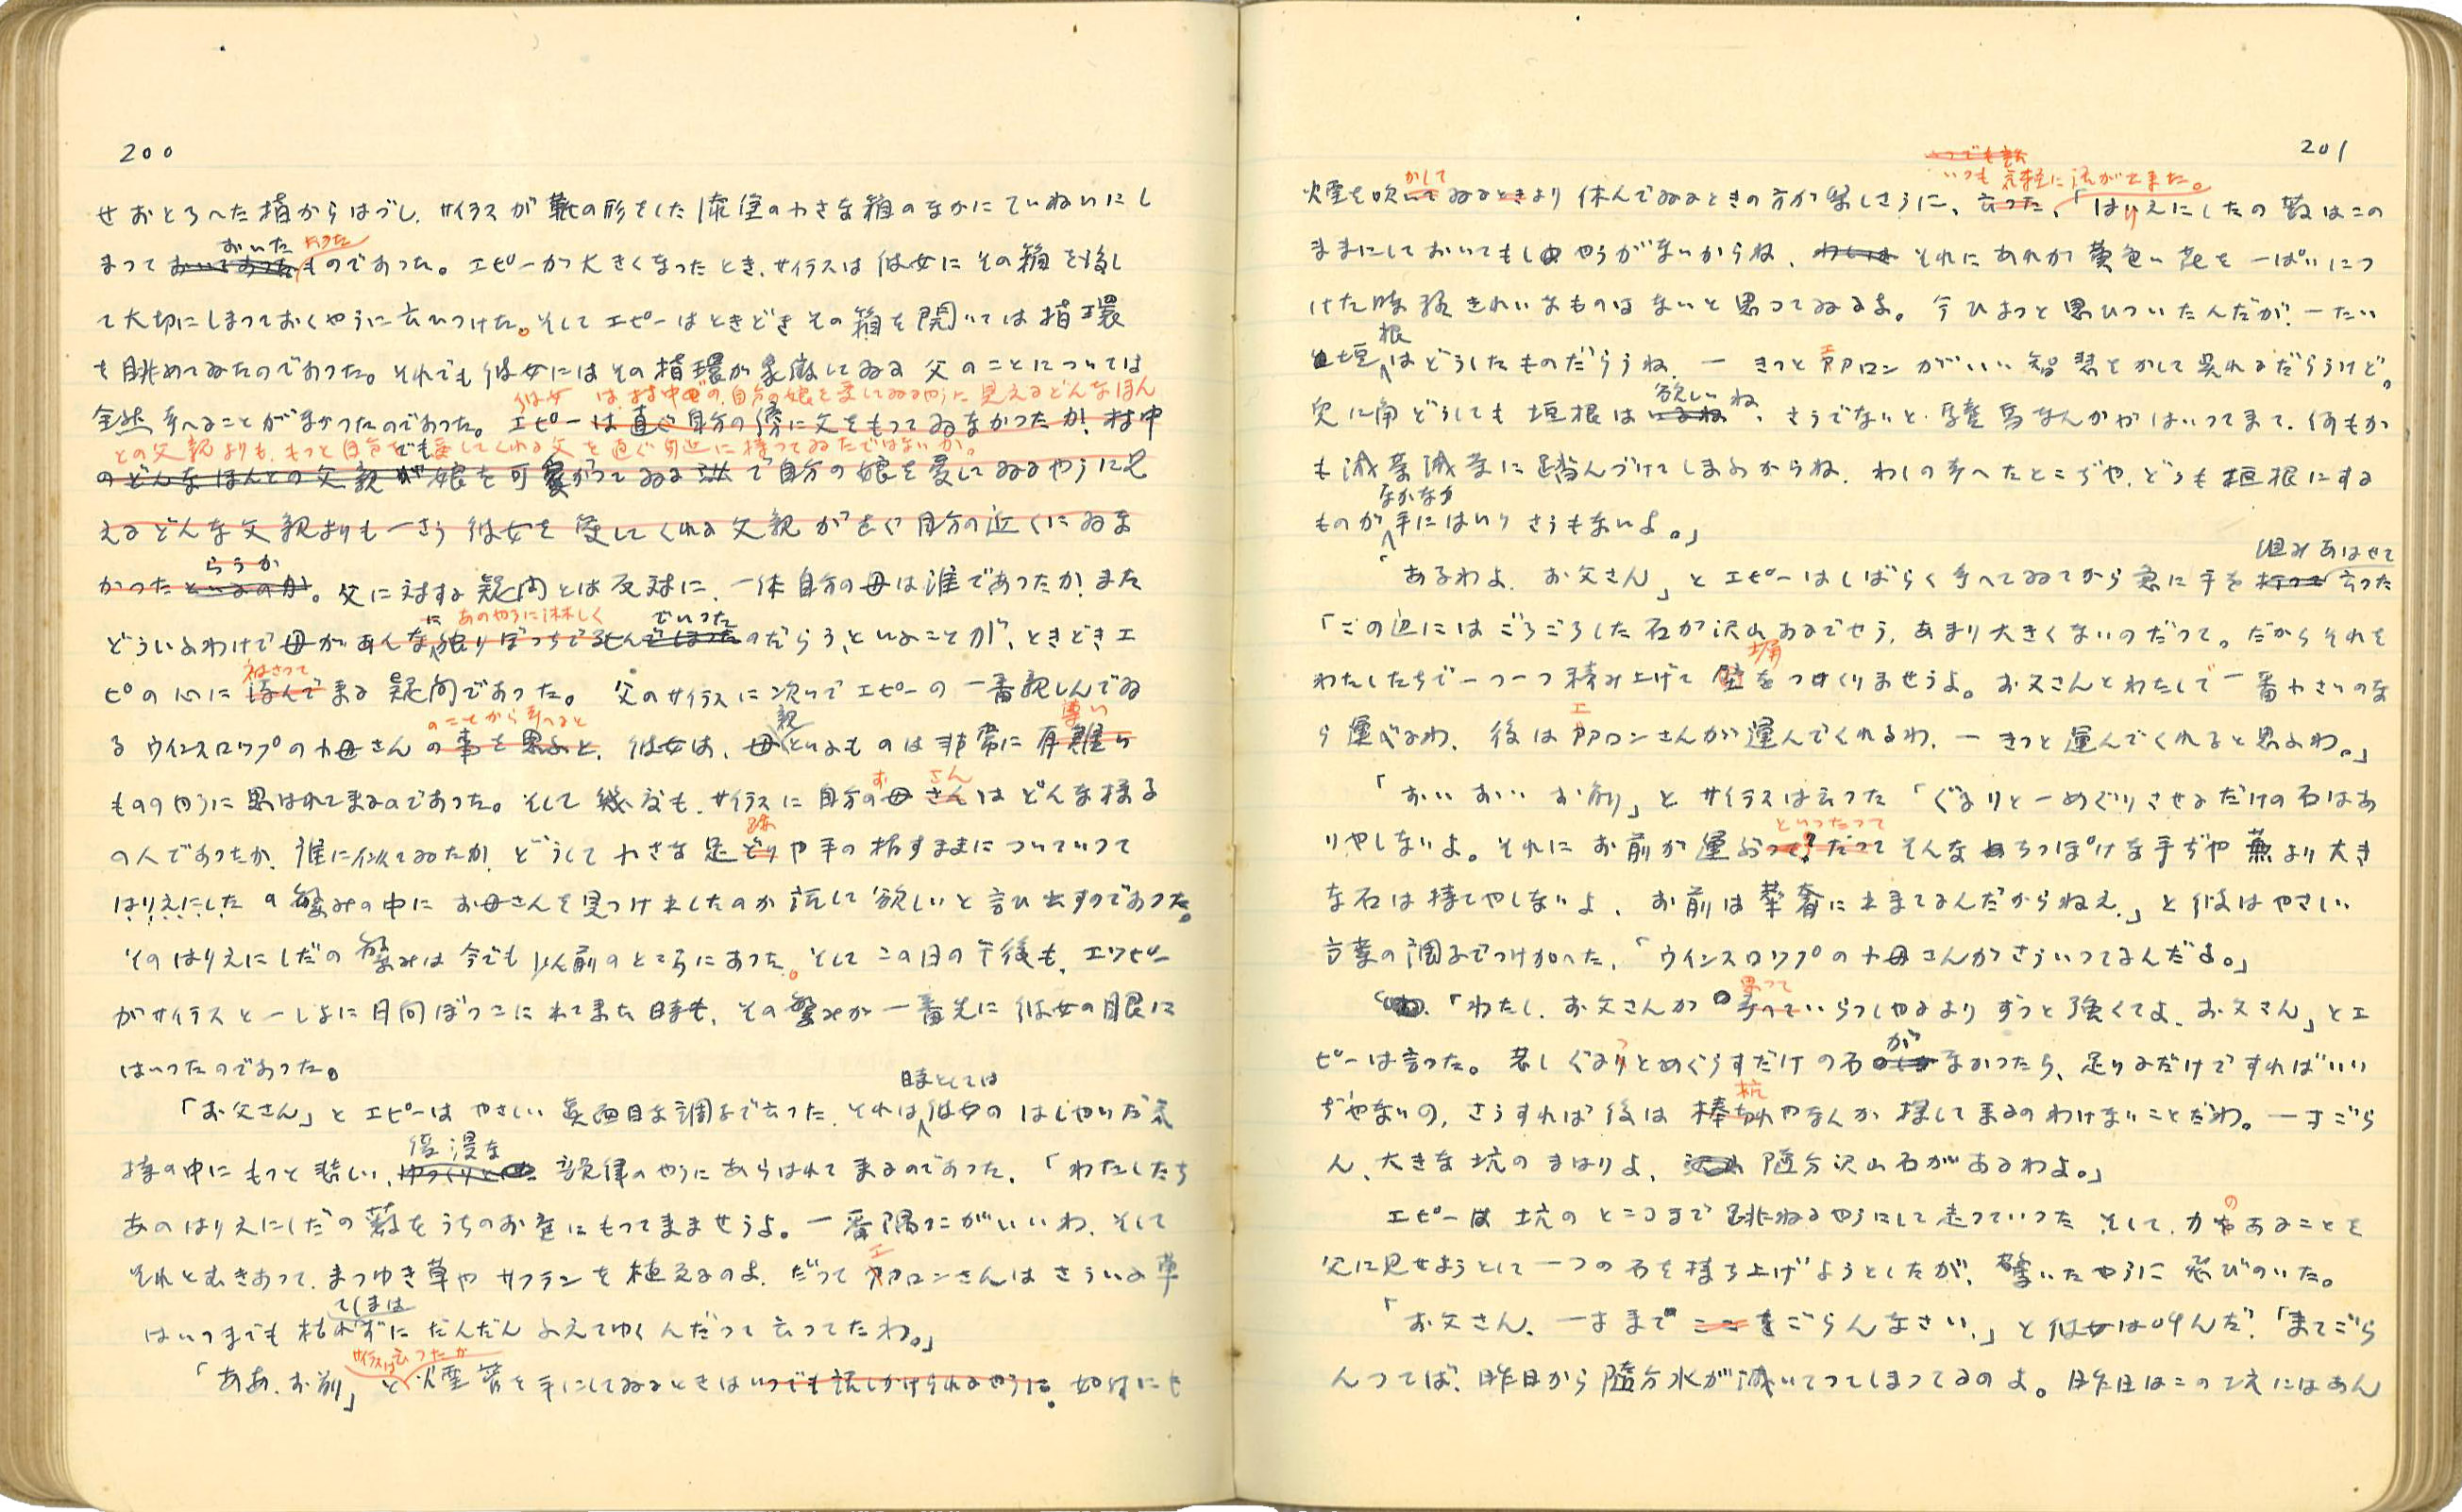 200
せおとろへた指からはづし、サイラスが靴の形をした小さな箱のなかにていねいにし
おいた
まつておいてあつたものであつた。エピーが大きくなつたとき、サイラスは彼女にその箱を渡し
て大切にしまつておくやうに言ひつけた。そしてエピーはときどきその箱を開いては指環
を眺めてみたのであつた。それでも彼女にはその指環が象徴してゐる父のことについては
彼女は村中の、自分の娘を愛してゐるやうに見えるどんなほん
全然考へることがなかつたのであつた。エピーは直ぐ自分の傍に父をもつてゐなかつたか!村中
との父親よりも、もつと自分を愛してくれる父を直ぐ身近に持つてゐたではないか。
のどんなほんとの父親が娘を可愛がつてゐるで自分の娘を愛してゐるやうに見
えるどんな父親よりも一さう彼女を愛してくれる父親がすぐ自分の近くにゐな
らうか
かつたといふのか。父に対する疑問とは反対に、一体自分の母は誰であつたか!また
に あのやうに淋しく でいつた
どういふわけで母があんな独りぼつちで死んでしまつたのだらう、といふことが、ときどきエ
ピの心に浮んで来る疑問であつた。父のサイラスに次いでエピーの一番親しんでゐ
のことから考へると 親 尊い
るウインスロツプの小母さんの事を思ふと、彼女は、母といふものは非常に有難い
お さん
もののやうに思はれて来るのであつた。そして幾度も、サイラスに自分の母さんはどんな様子
跡
の人であつたか、誰に似てゐたか、どうして小さな足どりや手の指すままについていつて
はりえにしだの繁みの中にお母さんを見つけ出したのか話して欲しいと言ひ出すのであつた。
そのはりえにしだの繁みは今でも以前のところにあつた。そしてこの日の午後も、エツピー
がサイラスと一しよに日向ぼつこに出て来た時も、その繁みが一番先に彼女の眼に
はいつたのであつた。
時としては
「お父さん」とエピーはやさしい真面目な調子で云つた、それは彼女のはしやいだ気
緩漫な
持の中にもつと悲しい、ゆつくりとした旋律のやうにあらはれて来るのであつた、「わたしたち
あのはりえにしだの藪をうちのお庭にもつて来ませうよ。一番隅つこがいいわ、そして
エ
それとむきあつて、まつゆき草やサフランを植ゑるのよ、だつてアアロンさんはさういふ草
てしまは
はいつまでも枯れずにだんだんふえてゆくんだつて云つてたわ。」
サイラスは云つたが
「ああ、お前」と煙管を手にしてゐるときはいつでも話しかけられるやうに。如何にも
201
いつでも言
かして いつも気軽に話がでまた。
煙を吹いてゐるときより休んでゐるときの方が楽しさうに、云つた、「はりえにしたの藪はこの
ままにしておいてもしやうがないからね、わしは それにあれが黄色い花を一ぱいにつ
けた時程きれいなものはないと思つてゐるよ。今ひよつと思ひついたんだが、一たい
根 エ
垣はどうしたものだらうね、— きつとアアロンがいい智慧をかして呉れるだらうけど。
欲しいね
兎に角どうしても垣根はいるね、さうでないと驢馬なんかがはいつて来て、何もか
も滅茶滅茶に踏んづけてしまふからね、わしの考へたところぢや、どうも垣根にする
なかなか
ものが手にはいりさうもないよ。」
組みあはせて
「あるわよ、お父さん」とエピーはしばらく考へてゐてから急に手を打つて云つた
「この辺にはごろごろした石が沢山あるでせう、あまり大きくないのだつて。だからそれを
塀
わたしたちで一つ一つ積み上げて壁をつくりませうよ。お父さんとわたしで一番小さいのな
エ
ら運べるわ、後はアアロンさんが運んでくれるわ、— きつと運んでくれると思ふわ。」
「おいおいお前」とサイラスは云つた「ぐるりと一めぐりさせるだけの石はあ
といつたつて
りやしないよ。それにお前が運ぶつて?だつてそんなちつぽけな手ぢや蕪より大き
な石は持てやしないよ、お前は華奢に出来てるんだからねえ、」と彼はやさしい
言葉の調子でつけ加へた、「ウインスロツプの小母さんがさういつてるんだよ。」
思つて
「わたし、お父さんが考へていらつしやるよりずつと強くてよ、お父さん」とエ
が
ピーは言つた。若しぐるりとめぐらすだけの石がなかつたら、足りるだけですればいい
杭
ぢやないの、さうすれば後は棒切れやなんか探して来るのわけないことだわ。—すごら
ん、大きな坑のまはりよ、随分沢山石があるわよ。」
の
エピーは坑のところまで跳ねるやうにして走つていつた そして、力があることを
父に見せようとして一つの石を持ち上げようとしたが、驚いたやうに飛びのいた。
「お父さん、一寸まで ここをごらんなさい、」と彼女は叫んだ、「まてごら
んつてば、昨日から随分水が減いてつてしまつてるのよ。昨日はこの上えにはあん